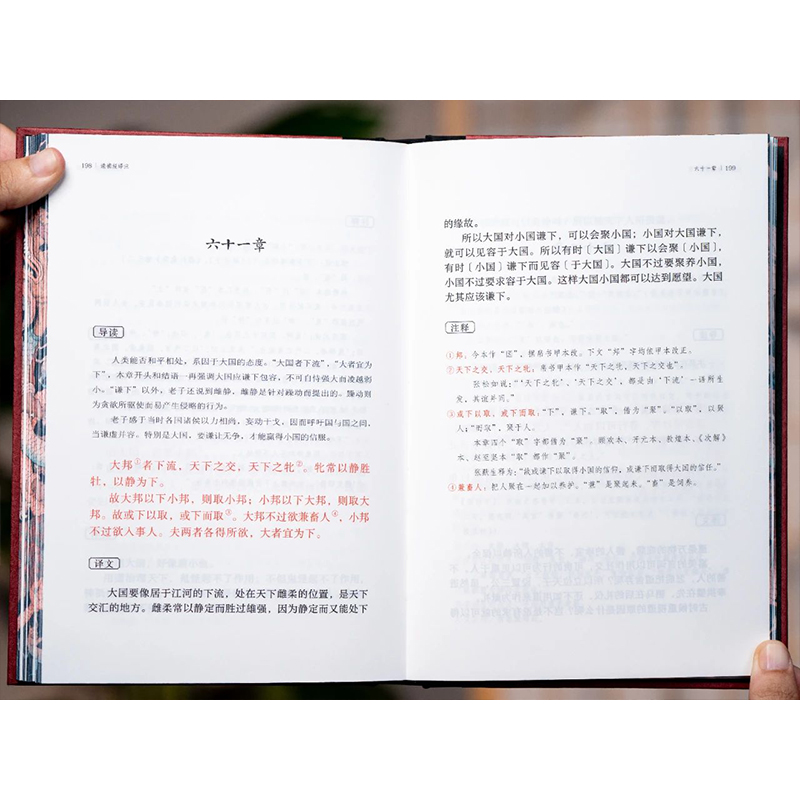 198
六十一章
导读
人类能否和平相处，系因于大国的态度。“大国者下流”，“大者宜为
下”，本章开头和结语一再强调大国应谦下包容，不可自恃强大而凌越弱
小。“谦下”以外，老子还说到雌静，雌静是针对躁动而提出的。躁动则
为贪欲所驱使而易产生侵略的行为。
老子感于当时各国诸侯以力相尚，妄动干戈，因而呼吁国与国之间，
当谦虚并容。特别是大国，要谦让无争，才能赢得小国的信服。
大邦①者下流，天下之交，天下之牝②。牝常以静胜
牡，以静为下。
故大邦以下小邦，则取小邦；小邦以下大邦，则取大
邦。故或下以取，或下而取③。大邦不过欲兼畜人④，小邦
不过欲入事人。夫两者各得所欲，大者宜为下。
译文
大国要像居于江河的下流，处在天下雌柔的位置，是天下
交汇的地方。雌柔常以静定而胜过雄强，因为静定而又能处下
六十一章 199
的缘故。
所以大国对小国谦下，可以会聚小国；小国对大国谦下，
就可以见容于大国。所以有时〔大国〕谦下以会聚〔小国〕，
有时〔小国〕谦下而见容〔于大国〕。大国不过要聚养小国，
小国不过要求容于大国。这样大国小国都可以达到愿望。大国
尤其应该谦下。
注释
①邦，今本作“国”，据帛书甲本改。下文“邦”字均依甲本改正。
②天下之交，天下之牝：帛书甲本作“天下之牝，天下之交也”。
张松如说：“‘天下之牝’、‘天下之交’，都是由‘下流’一语所生
发，其谊并同。”
③或下以取，或下而取：“下”，谦下。“取”，借为“聚”。“以取”，以聚
人；“而取”，聚于人。
本章四个“取”字都借为“聚”。顾欢本、开元本、敦煌本、《次解》
本、赵至坚本“取”都作“聚”。
张默生释为：“故或谦下以取得小国的信仰，或谦下而取得大国的信任。”
④兼畜人：把人聚在一起加以养护。“兼”是聚起来，“畜”是饲养。